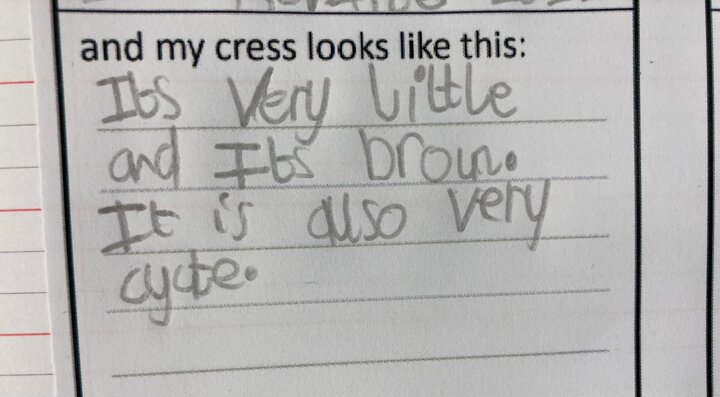 and my cress looks like this:
Its Very little
and Its broun.
It is also very
cyute.